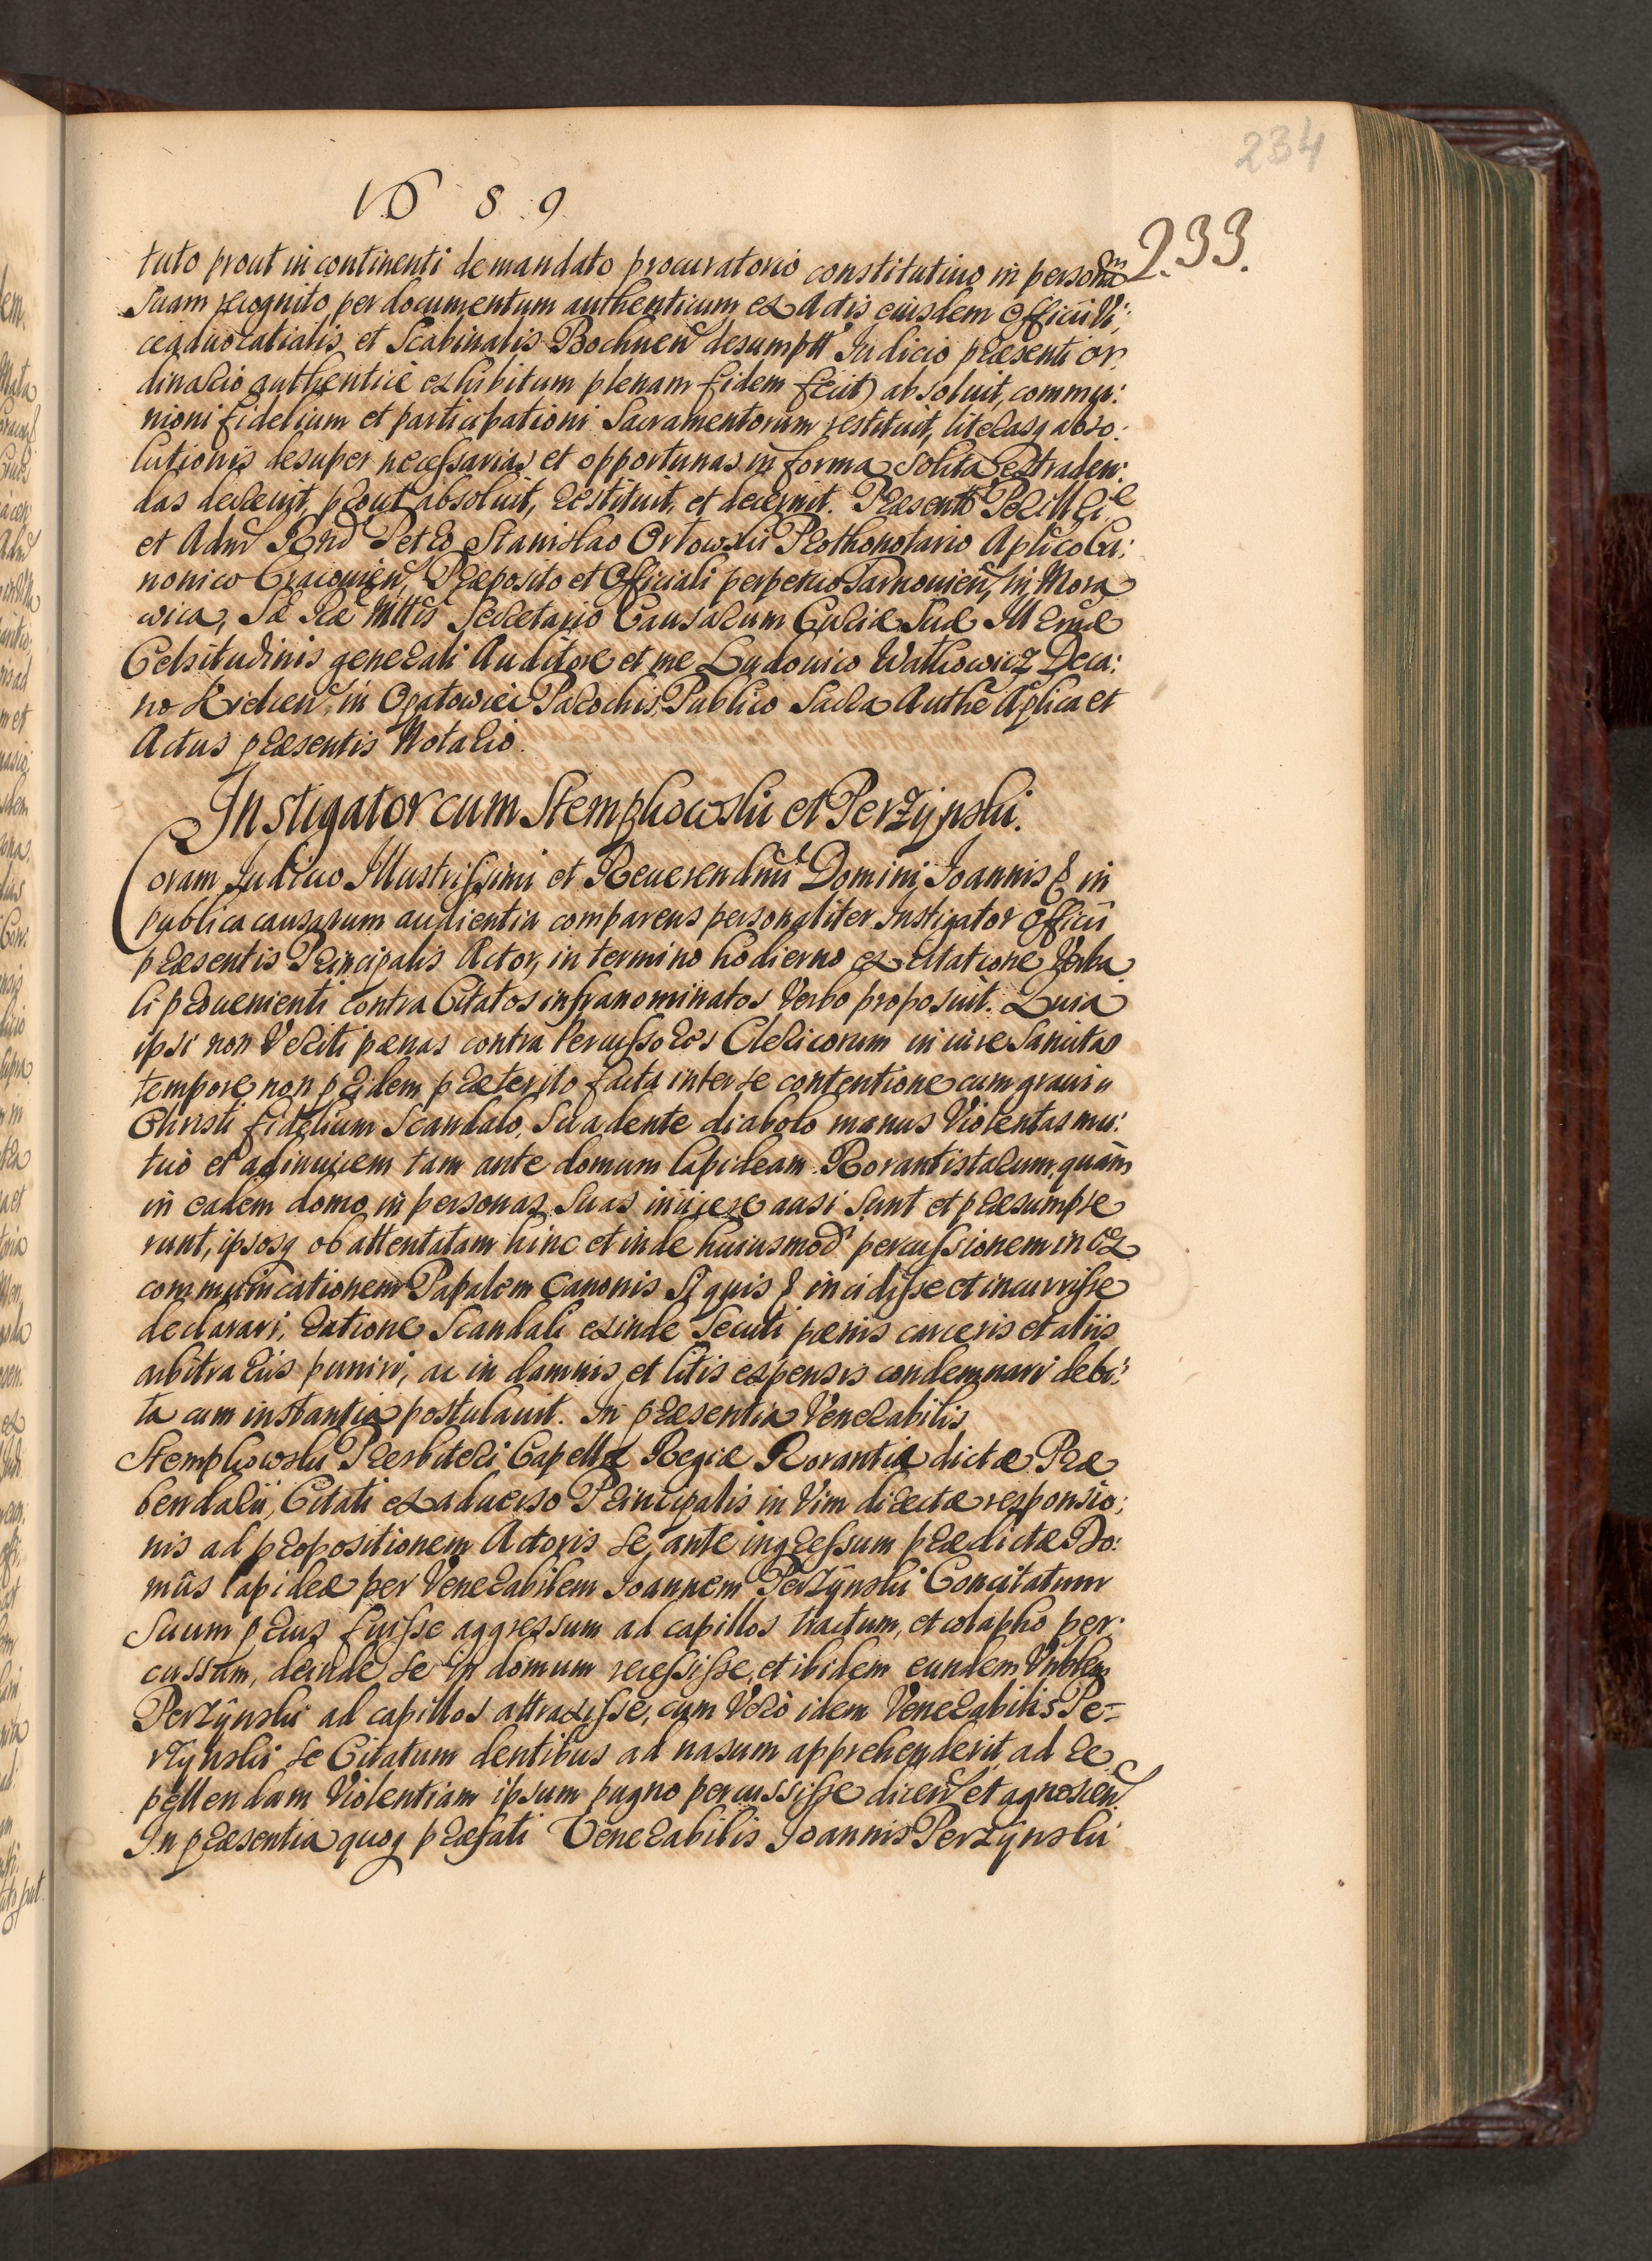 234
1689
233.
tuto prout in continenti de mandato procuratorio constitutiuo in persona
suam recognito, per documentum authenticum ex Actis eiusdem Officii Vi:
ceaduocatialis et Scabinalis Bochnen desumptt Iudicio praesenti or:
dinario authenticè exhibitum plenam fidem fecit) absoluit, commu:
nioni fidelium et participationi Sacramentorum restituit, literasq abso:
lutionis desuper necessarias et opportunas in forma solita extraden:
das decreuit, prout absoluit, restituit, et decernit. Praesentt Perilli
et Admr Rnd Petro Stanislao Orłowski Prothonotario Aplico Ca:
nonico Cracouien, Praeposito et Officiali perpetuo Tarnouien, in Mora
wica, Sae Rae Mttis Secretario Causarum Curiae Suae Ill Rmae
Celsitudinis generali Auditore et me Ludouico Watkowicz Deca:
no Xielcen, in Ogatowiei Parochis, Publico Sacra Authe Aplica et
Actus praesentis Notario.
Instigator cum Stempkowski et Perzÿnski.
Coram Iudicio Illustrissimi et Reuerendmi Domini Ioannis & in
publica causarum audientia comparens personaliter Instigator Officii
praesentis Principalis Actor, in termino hodierno ex citatione Verba
li prouenienti contra Citatos infranominatos Verbo proposuit. Quia
ipsi non Veriti paenas contra Percussores Clericorum in iure Sancitas
tempore non pridem praeterito facta inter se contentione cum graui
Christi fidelium Scandalo, Suadente diabolo manus Violentas mu:
tuò et adinuicem tam ante domum lapideam Rorantistarum, quàm
in eadem domo in personas suas iniicere ausi sunt et praesumpse
runt, ipsosq ob attentatam hinc et inde huiusmod percussionem in ex
communicationem Papalem Canonis Si quis & incidisse et incurrisse
declarari, ratione Scandali exinde Secuti paenis carceris et aliis
arbitrariis puniri, ac in damnis et litis expensis condemnari debi:
ta cum instantia postulauit. In praesentia Venerabilis
Stempkowski Presbiteri Capellae Regiae Rorantiae dictae Prae
bendarii, Citati ex aduerso Principalis in Vim directae responsio:
nis ad propositionem Actoris se, ante ingressum praedictae Do:
mûs lapideae per Venerabilem Ioannem Perzÿnski Concitatum
suum prius fuisse aggressum ad capillos tractum, et colapho per:
cussum, deinde se in domum recessisse, et ibidem eundem Vnblem
Perzÿnski ad capillos attraxisse, cum Verò idem Venerabilis Pe=
rzÿnski se Citatum dentibus ad nasum apprehenderit ad re
pellendam Violentiam ipsum pugno percussisse dicen et agnoscen
In praesentia quoq praefati Venerabilis Ioannis Perzÿnski